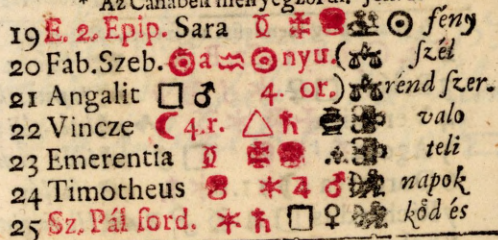 * Az Canabeli menyegzöröl
19 E. 2. Epip. Sara ☿ ☉ fény
20 Fab. Szeb. ☉ a ♒ ☉ nyu. ( szél
21 Angalit □ ♂ 4. or. ) rénd szer.
22 Vincze ☾ 4. r. △ ♄ valo
23 Emerentia ☿ teli
24 Timotheus 8 ✶ ♃ ♂ napok
25 Sz. Pál ford. ✶ ♄ □ ♀ köd és